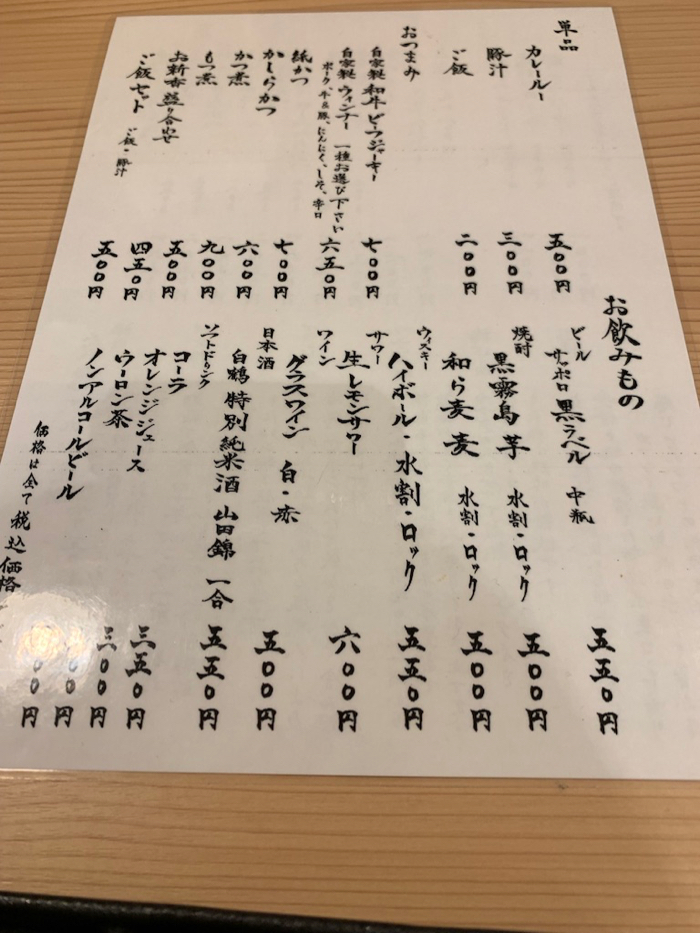 単品
カレールー 五〇〇円
豚汁 三〇〇円
ご飯 二〇〇円
おつまみ
自家製 和牛ビーフジャーキー 七〇〇円
自家製 ウィンナー 一種お選び下さい 六五〇円
ポーク、牛&豚、にんにく、しそ、辛口
紙かつ 七〇〇円
かしらかつ 六〇〇円
かつ煮 九〇〇円
もつ煮 五〇〇円
お新香盛り合わせ 四五〇円
ご飯セット ご飯・豚汁 五〇〇円
お飲みもの
ビール
サッポロ 黒ラベル 中瓶 五五〇円
焼酎
黒霧島 芋 水割・ロック 五〇〇円
和ら麦 麦 水割・ロック 五〇〇円
ウィスキー
ハイボール・水割・ロック 五五〇円
サワー
生レモンサワー 六〇〇円
ワイン
グラスワイン 白・赤 五〇〇円
日本酒
白鶴 特別純米酒 山田錦 一合 五五〇円
ソフトドリンク
コーラ 三五〇円
オレンジジュース 三〇〇円
ウーロン茶 〇〇円
ノンアルコールビール 〇〇円
価格は全て税込価格